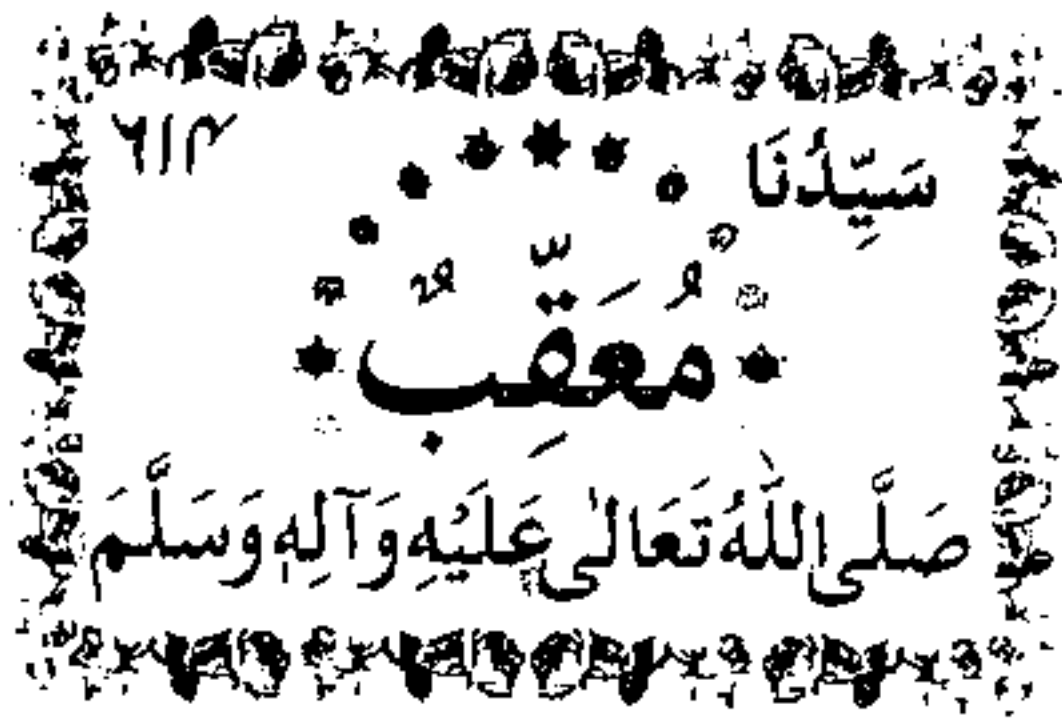 سَيِّدُنَا
٦١٣
مُعَقِّبٌ
صَلَّى اللّٰهُ تَعَالٰى عَلَيْهِ وَآلِهٖ وَسَلَّمَ